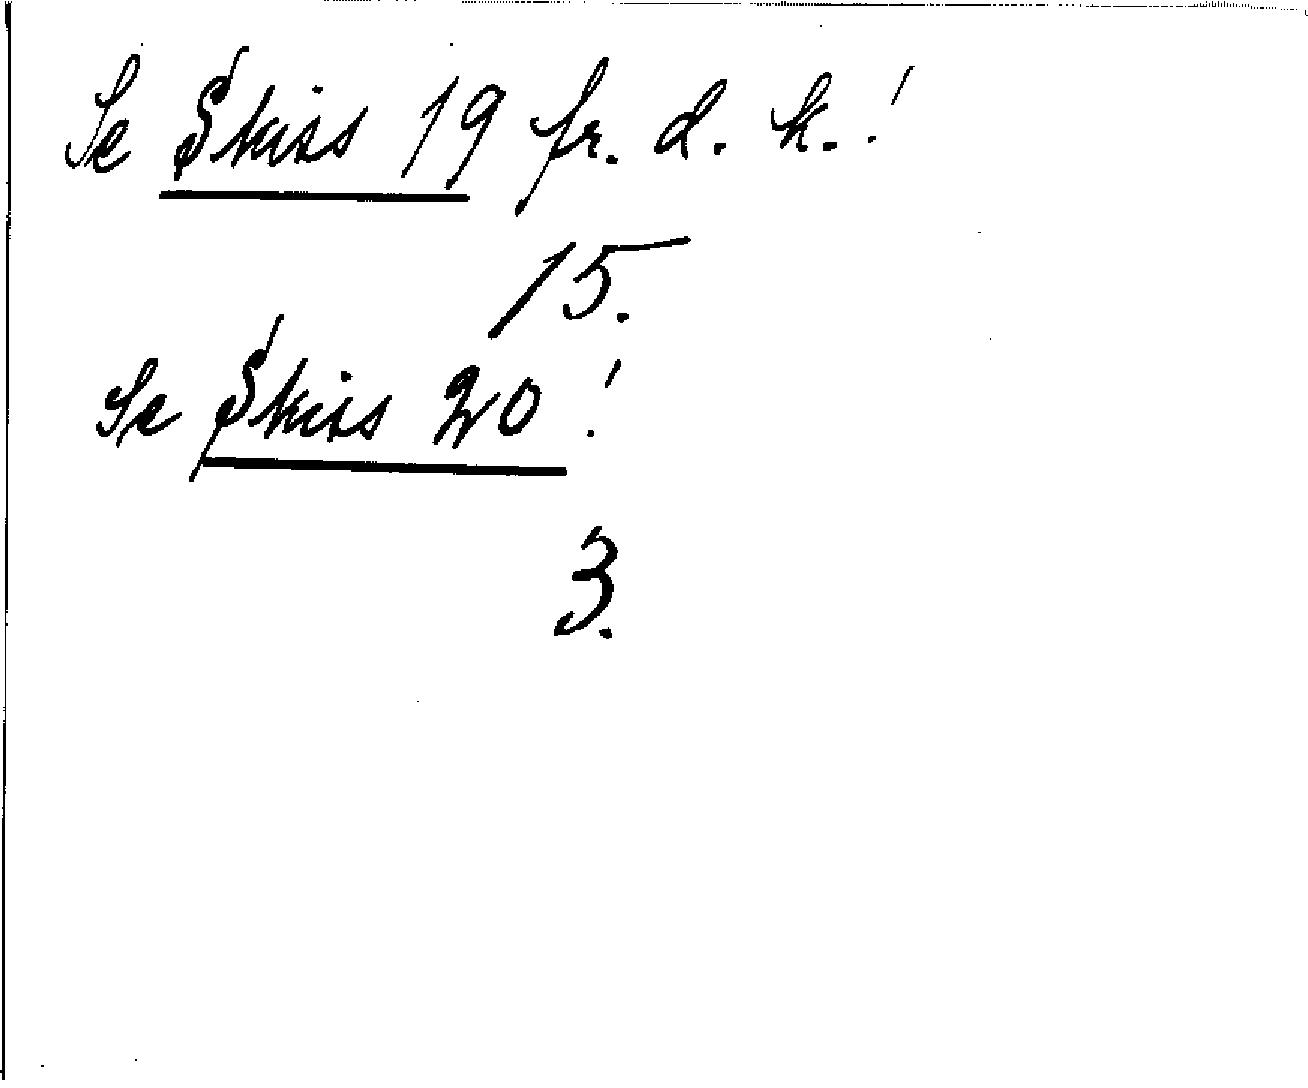 Se Skiss 19 fr. d. k.!
15.
Se Skiss 20!
3.